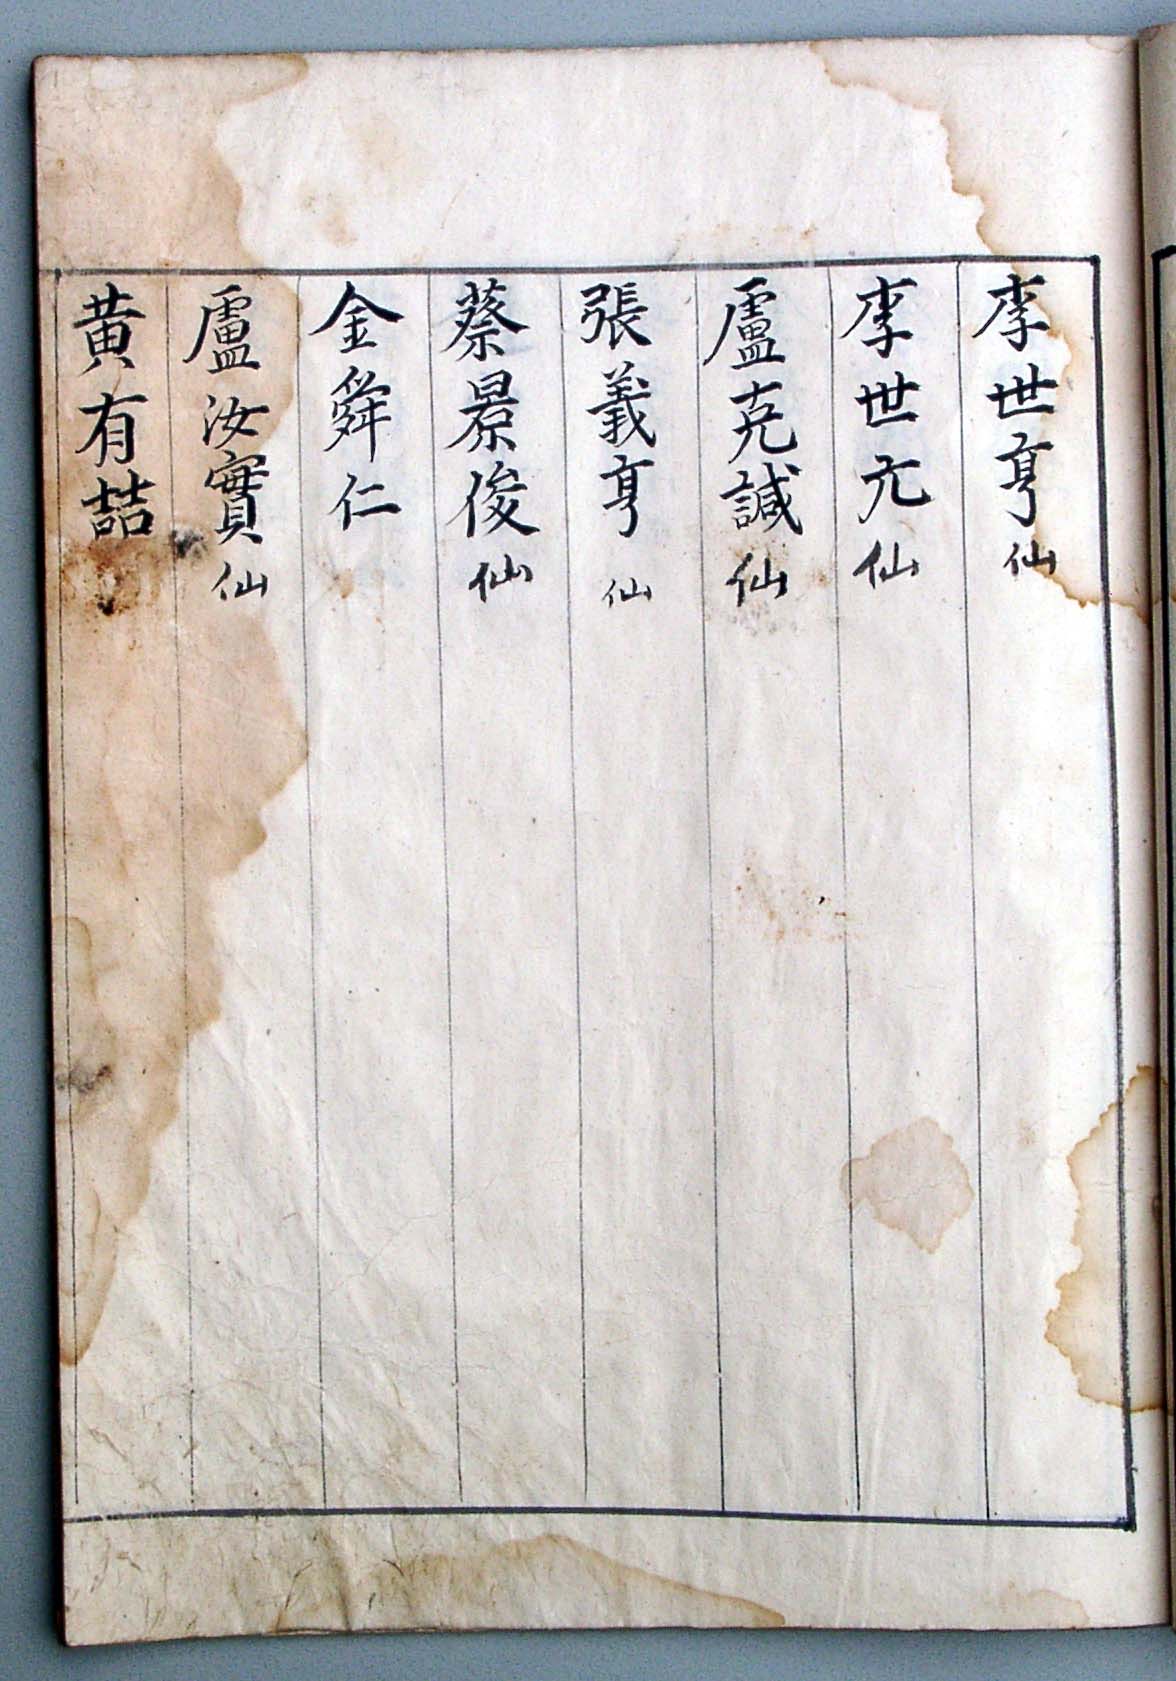 李世亨仙
李世元仙
盧克諴仙
張義亨仙
蔡景俊仙
金舜仁
盧汝實仙
黄有喆